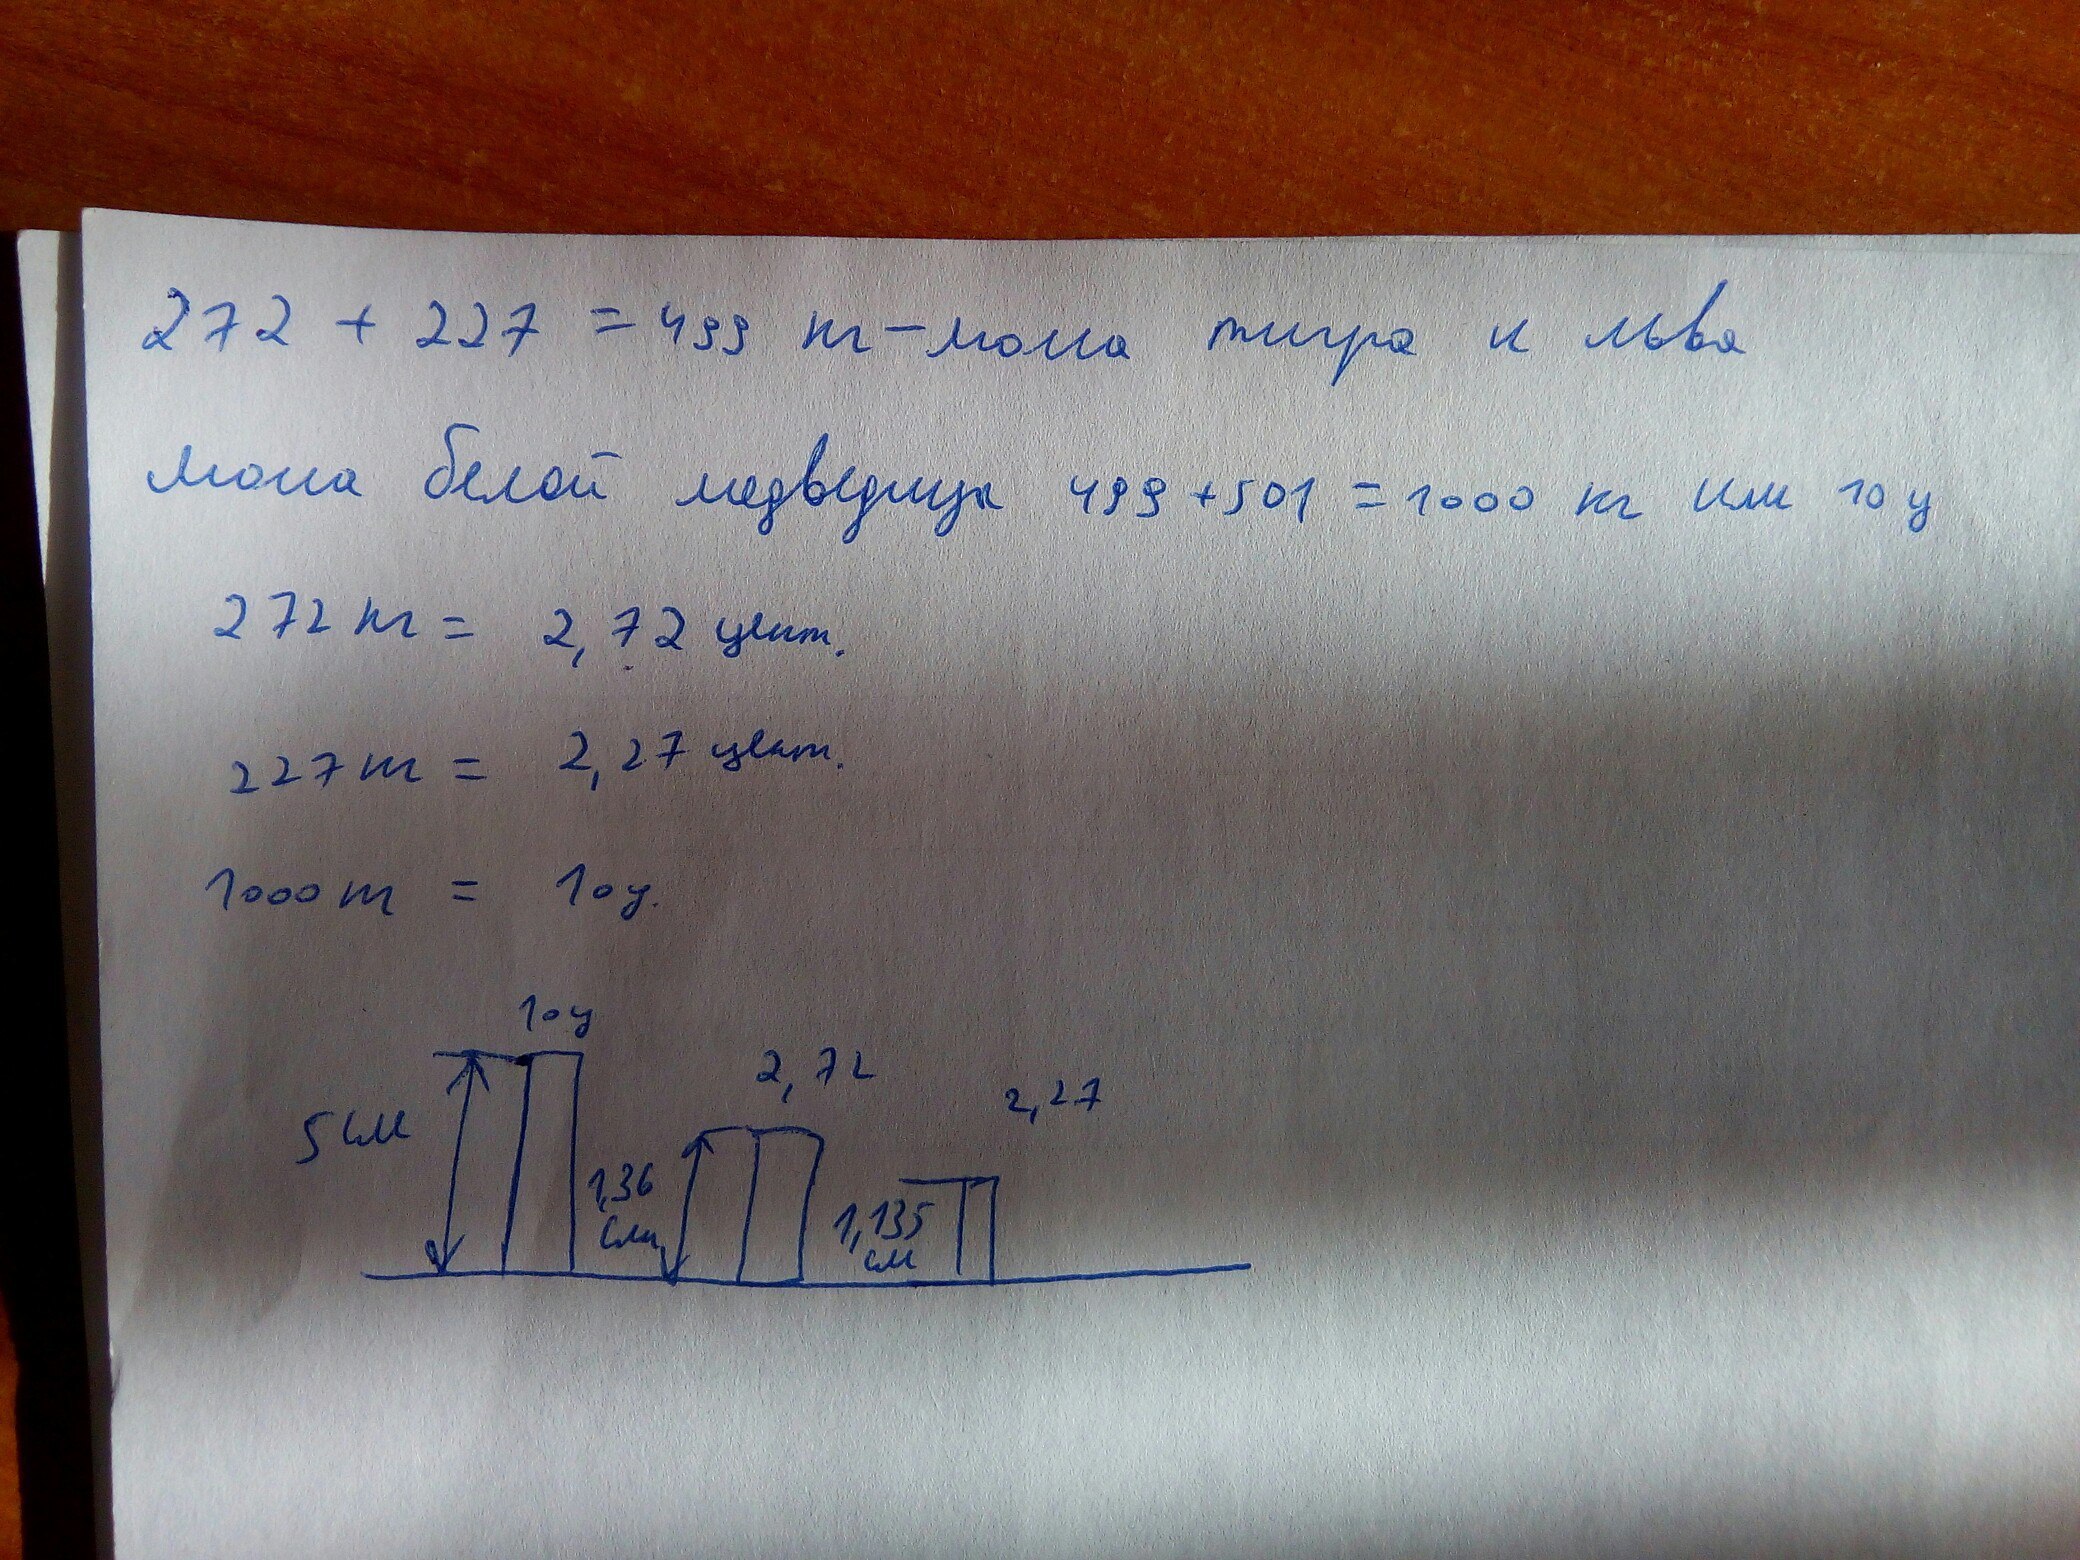 272 + 227 = 499 кг - масса тигра и льва
масса белой медведицы 499 + 501 = 1000 кг или 10 ц
272 кг = 2,72 цент.
227 кг = 2,27 цент.
1000 кг = 10 ц.
10 ц
2,72
2,27
5 см
1,36
см
1,135
см